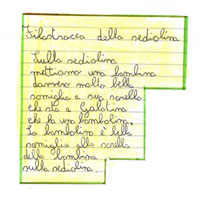 Filastrocca della sediolina
Sulla sediolina
mettiamo una bambina
davvero molto bella
somiglia a sua sorella
che sta a Galatina
che ha una bambolina.
La bambolina è bella
somiglia alla sorella
della bambina
sulla sediolina.